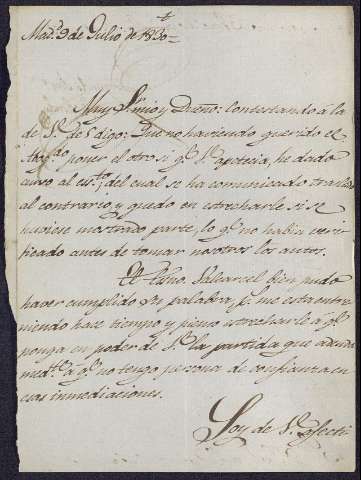 Mad.d 9 de Julio de 1830=
Muy S.r mio y Dueño: Contestando á la
de V. de 5 digo: Que no haviendo querido el
Abog.do poner el otro si q.e V. apetecia, he dado
curso al es.to, del cual se ha comunicado traslado
al contrario, y quedo en estrecharle si se
huviese mostrado parte, lo q.e no habia veri-
ficado antes de tomar nosotros los autos.
El Balcarcel bien pudo
haver cumplido su palabra, p.s me está entre-
niendo hace tiempo y pienso estrecharle á q.e
ponga en poder de V. la partida que adeuda
med.te á q.e no tengo persona de confianza en
esas inmediaciones.
Soy de V. afecti